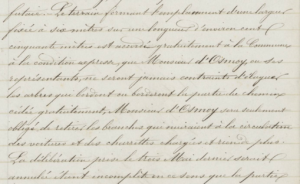 future. Le terrain formant l'emplacement d'une largeur
fixée à six mètres sur une longueur d'environ cent
cinquante mètres est accordé gratuitement à la Commune
à la condition expresse, que Monsieur d'Osmoy ou ses
représentants, ne seront jamais contraints d'élaguer
les arbres qui bordent ou borderont la partie de chemin
cédée gratuitement, Monsieur d'Osmoy sera seulement
obligé de retirer les branches qui nuiraient à la circulation
des voitures et des charrettes chargées et rendu plus
La délibération prise le treize Mai dernier serait
annulée étant incomplète en ce sens que la partie